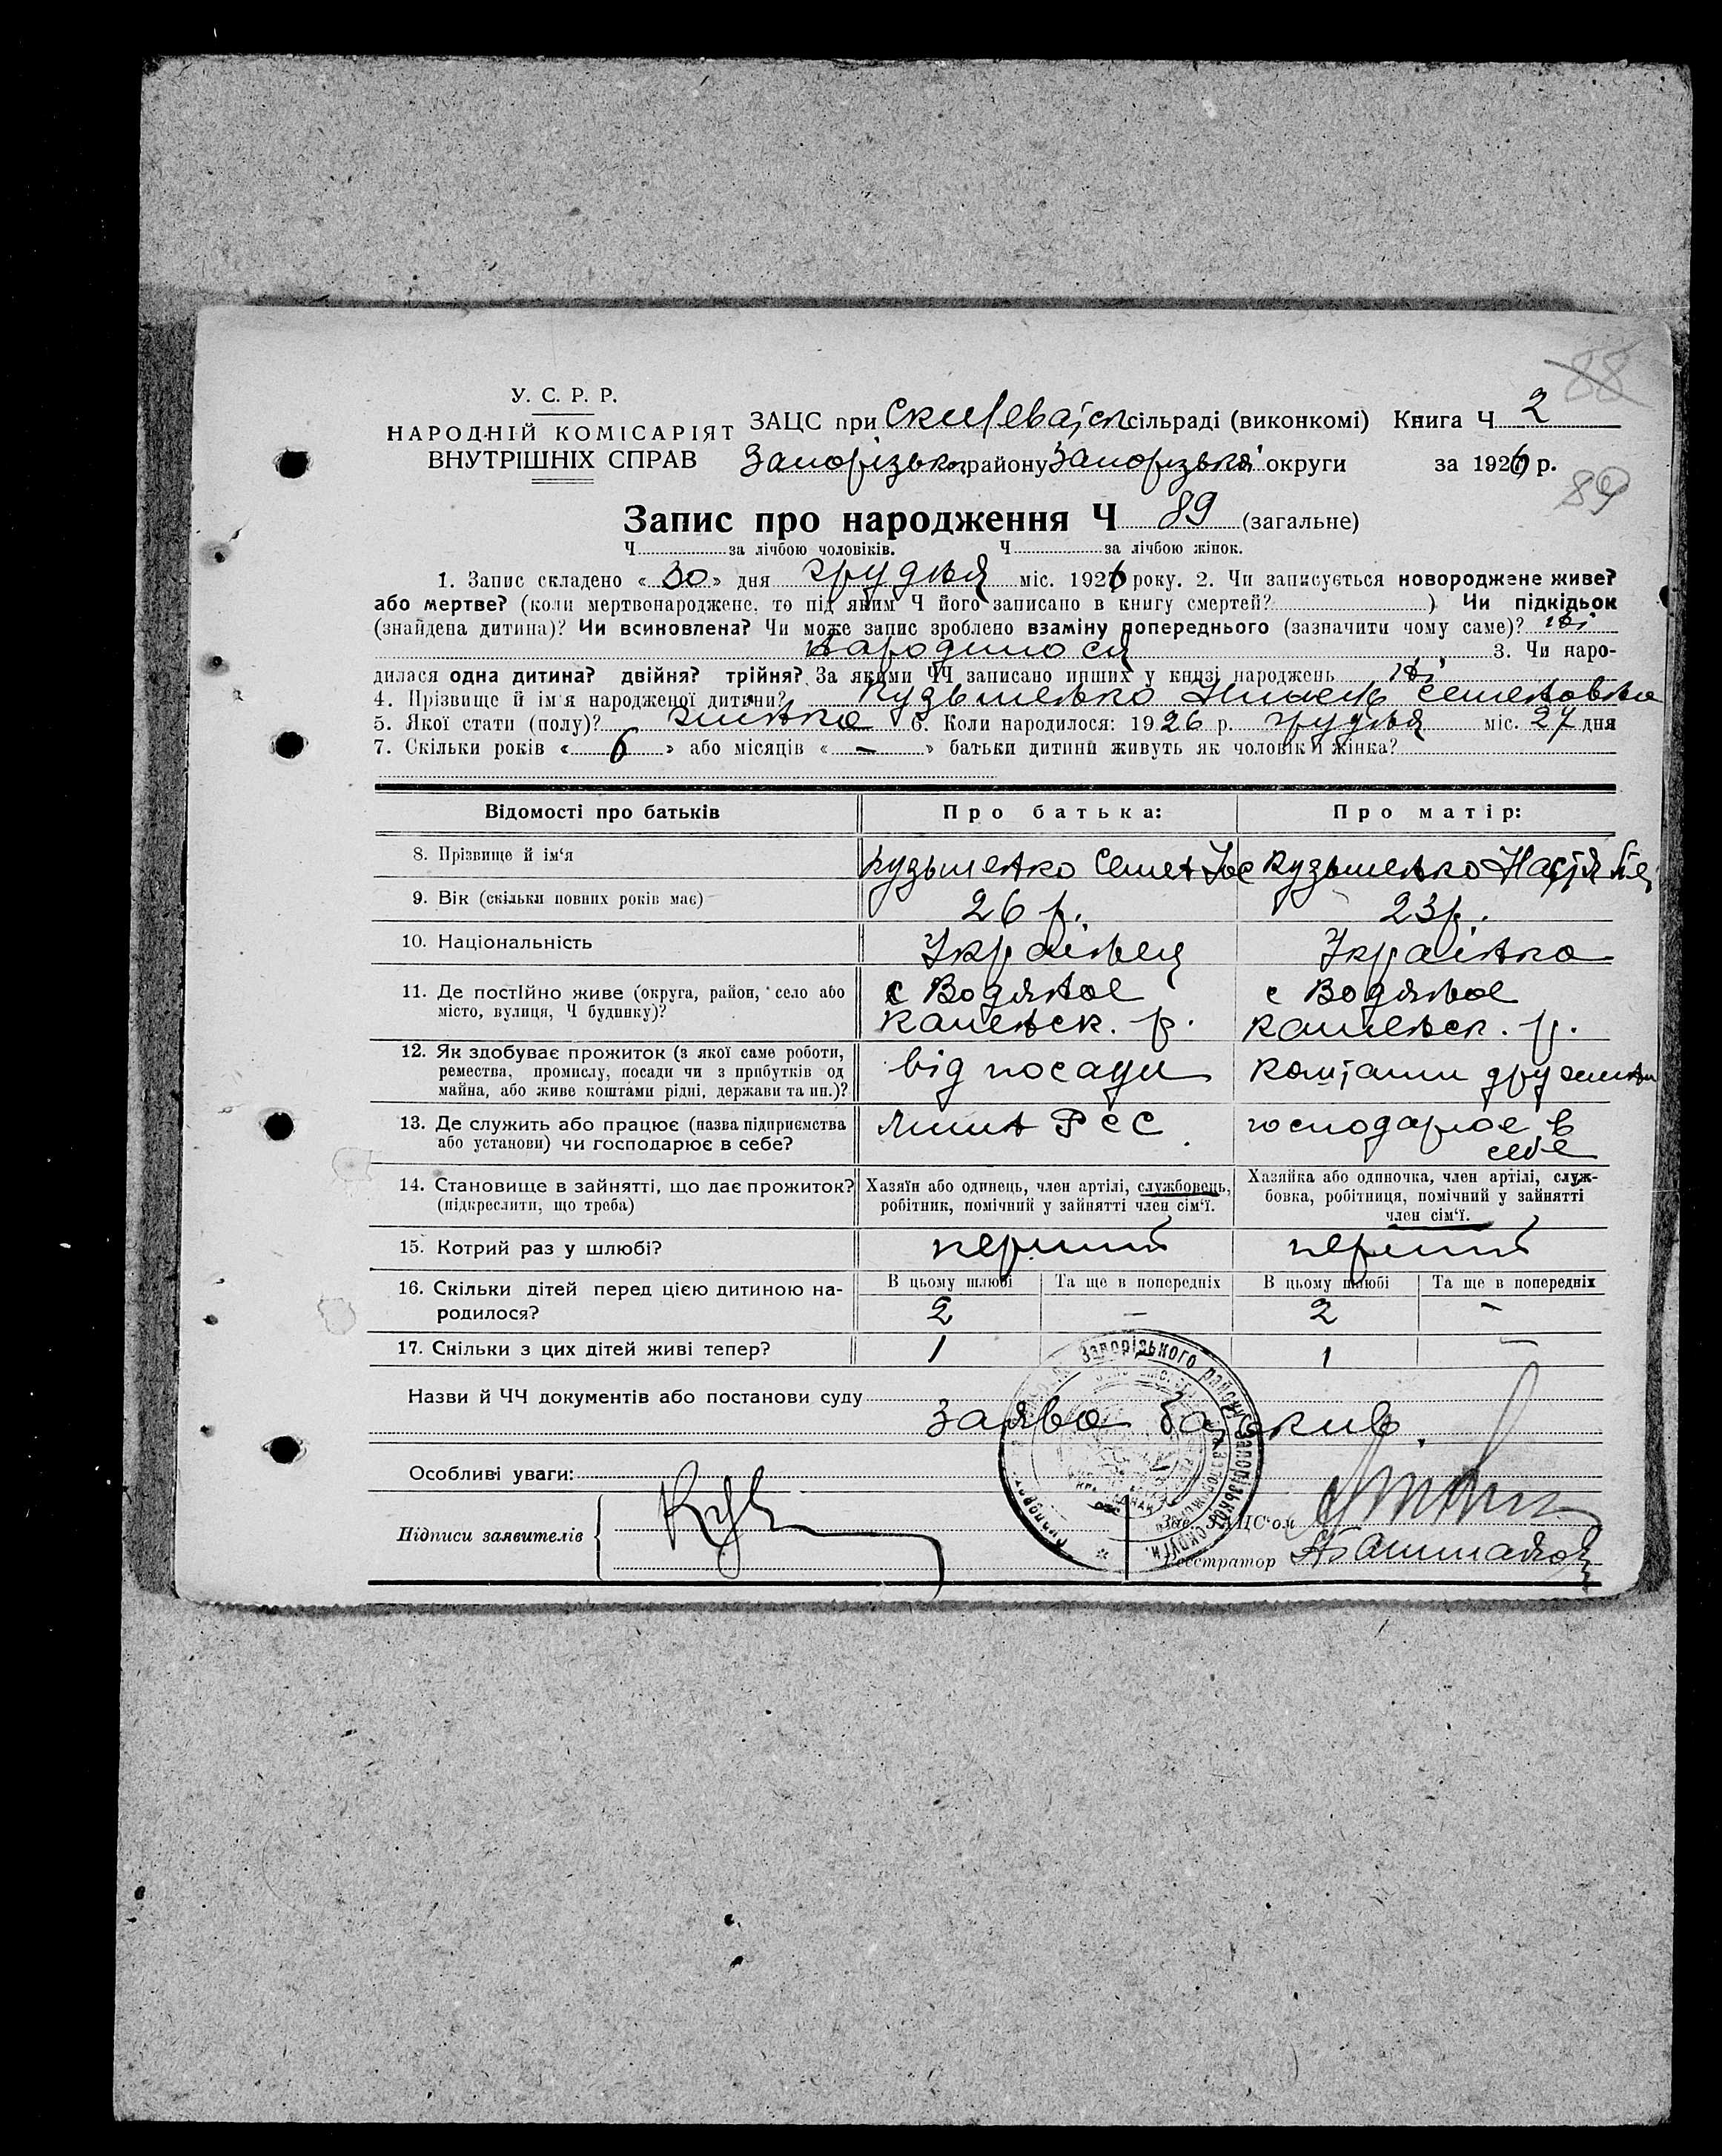 88
У. С. Р. Р.
НАРОДНІЙ КОМІСАРІЯТ
ВНУТРІШНІХ СПРАВ
ЗАЦС при сільраді (виконкомі) Книга Ч 2
району округи за 1926 р.
89
Запис про народження Ч 89 (загальне)
Ч за лічбою чоловіків. Ч за лічбою жінок.
1. Запис складено « 30 » дня грудня міс. 1926 року. 2. Чи записується новороджене живе?
або мертве? (коли мертвонароджене, то під яким Ч його записано в книгу смертей? ) Чи підкідьок
(знайдена дитина)? Чи всиновлена? Чи може запис зроблено взаміну попереднього (зазначити чому саме)? ні
народилося 3. Чи наро-
дилася одна дитина? двійня? трійня? За якими ЧЧ записано инших у книзі народжень ні
4. Прізвище й ім'я народженої дитини? Кузьменко Семеновна
5. Якої стати (полу)? жінка 6. Коли народилося: 1926 р. грудня міс. 27 дня
7. Скільки років « 6 » або місяців « – » батьки дитини живуть як чоловік й жінка?
Відомості про батьків Про батька: Про матір:
8. Прізвище й ім'я Кузьменко Семен Кузьменко Настя
9. Вік (скільки повних років має) 26 р. 23 р.
10. Національність Українец Українка
11. Де постійно живе (округа, район, село або с Водяное с Водяное
місто, вулиця, Ч будинку)? Каменск. р. Каменск. р.
12. Як здобуває прожиток (з якої саме роботи,
ремества, промислу, посади чи з прибутків од від посади Коштами
майна, або живе коштами рідні, держави та ин.)?
13. Де служить або працює (назва підприємства господарює в
або установи) чи господарює в себе? себе
14. Становище в зайнятті, що дає прожиток? Хазяїн або одинець, член артілі, службовець, Хазяйка або одиночка, член артілі, служ-
(підкреслити, що треба) робітник, помічний у зайнятті член сім'ї. бовка, робітниця, помічний у зайнятті
член сім'ї.
15. Котрий раз у шлюбі? перший перший
16. Скільки дітей перед цією дитиною на- В цьому шлюбі Та ще в попередніх В цьому шлюбі Та ще в попередніх
родилося? 2 – 2 –
17. Скільки з цих дітей живі тепер? 1 1 –
Назви й ЧЧ документів або постанови суду
Заява батьків.
Особливі уваги:
Підписи заявителів Зав. ЗАЦС'ом
Реєстратор
Запорізького району Запорізької округи